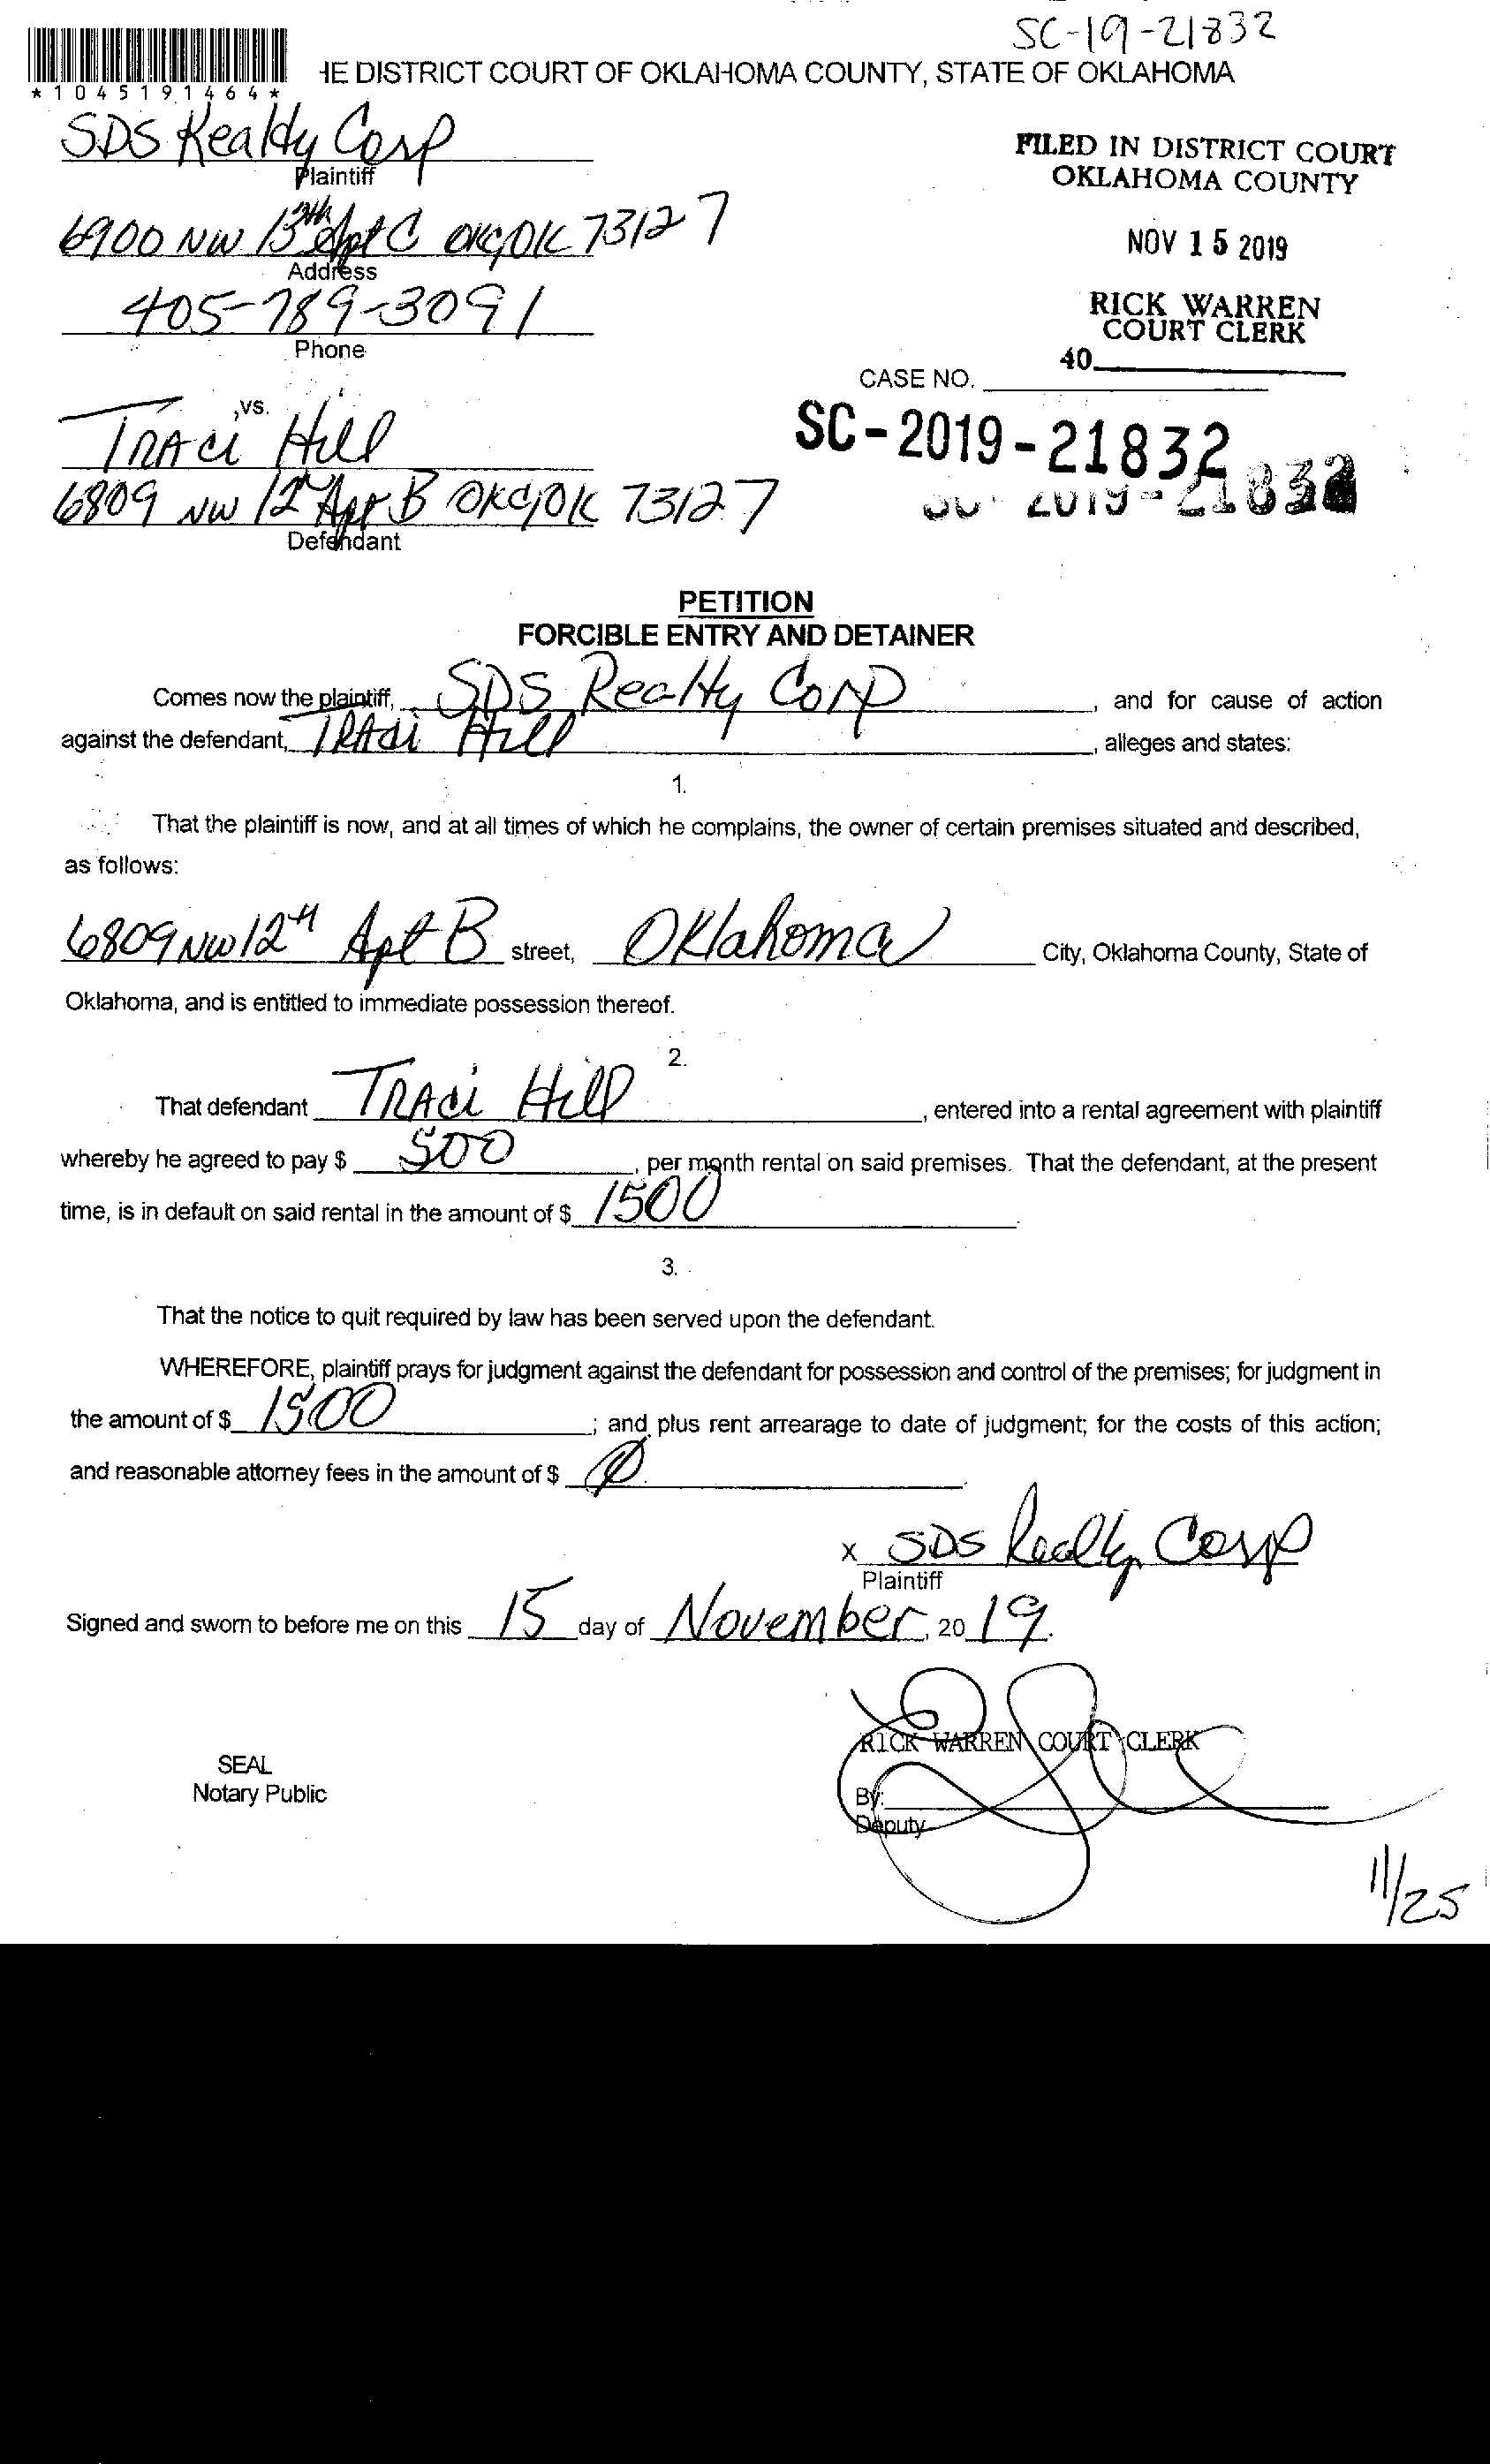 SC-19-21832
HE DISTRICT COURT OF OKLAHOMA COUNTY, STATE OF OKLAHOMA
*1045191464*
SDS Realty Corp
Plaintiff
FILED IN DISTRICT COURT
OKLAHOMA COUNTY
6900 NW 13th Apt C OKC, OK 73127
Address
NOV 15 2019
405-789-3091
Phone
RICK WARREN
COURT CLERK
40
CASE NO.
,vs.
Traci Hill
SC-2019-21832
6809 NW 12th Apt B OKC, OK 73127
Defendant
SC-2019-21832
PETITION
FORCIBLE ENTRY AND DETAINER
Comes now the plaintiff, SDS Realty Corp, and for cause of action
against the defendant, Traci Hill, alleges and states:
1.
That the plaintiff is now, and at all times of which he complains, the owner of certain premises situated and described,
as follows:
6809 NW 12th Apt B street, Oklahoma City, Oklahoma County, State of
Oklahoma, and is entitled to immediate possession thereof.
2.
That defendant Traci Hill, entered into a rental agreement with plaintiff
whereby he agreed to pay $ 500, per month rental on said premises. That the defendant, at the present
time, is in default on said rental in the amount of $ 1500.
3.
That the notice to quit required by law has been served upon the defendant.
WHEREFORE, plaintiff prays for judgment against the defendant for possession and control of the premises; for judgment in
the amount of $ 1500; and plus rent arrearage to date of judgment; for the costs of this action;
and reasonable attorney fees in the amount of $ Ø.
x SDS Realty Corp
Plaintiff
Signed and sworn to before me on this 15 day of November, 20 19.
RICK WARREN COURT CLERK
SEAL
Notary Public
By:
Deputy
11/25